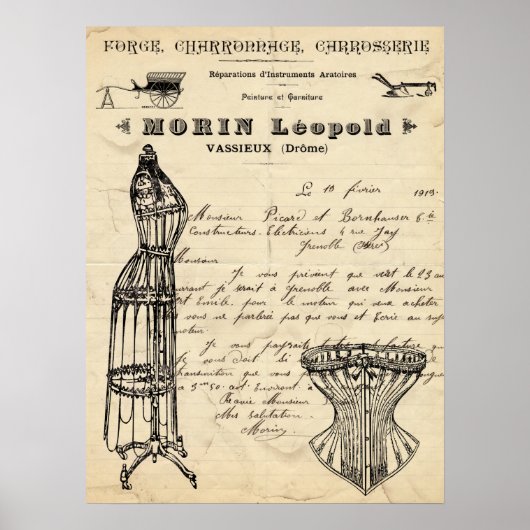 FORGE, CHARRONNAGE, CARROSSERIE
Réparations d'Instruments Aratoires
Peinture et Garniture
MORIN Léopold
VASSIEUX (Drôme)
Le 19 février 1913.
Monsieur Picard et Bornhauser
Constructeurs-Electriciens 4 rue Jay
Grenoble
Monsieur
Je vous prévient que vert le 23 au
courant je serait à Grenoble avec Monsieur
Emile, pour le moteur qui
vous ne parleriè pas que vous et Ecrie au suf
moteur.
Je vous
doit si
que vous
Monsieur
Mes salutation
Morin